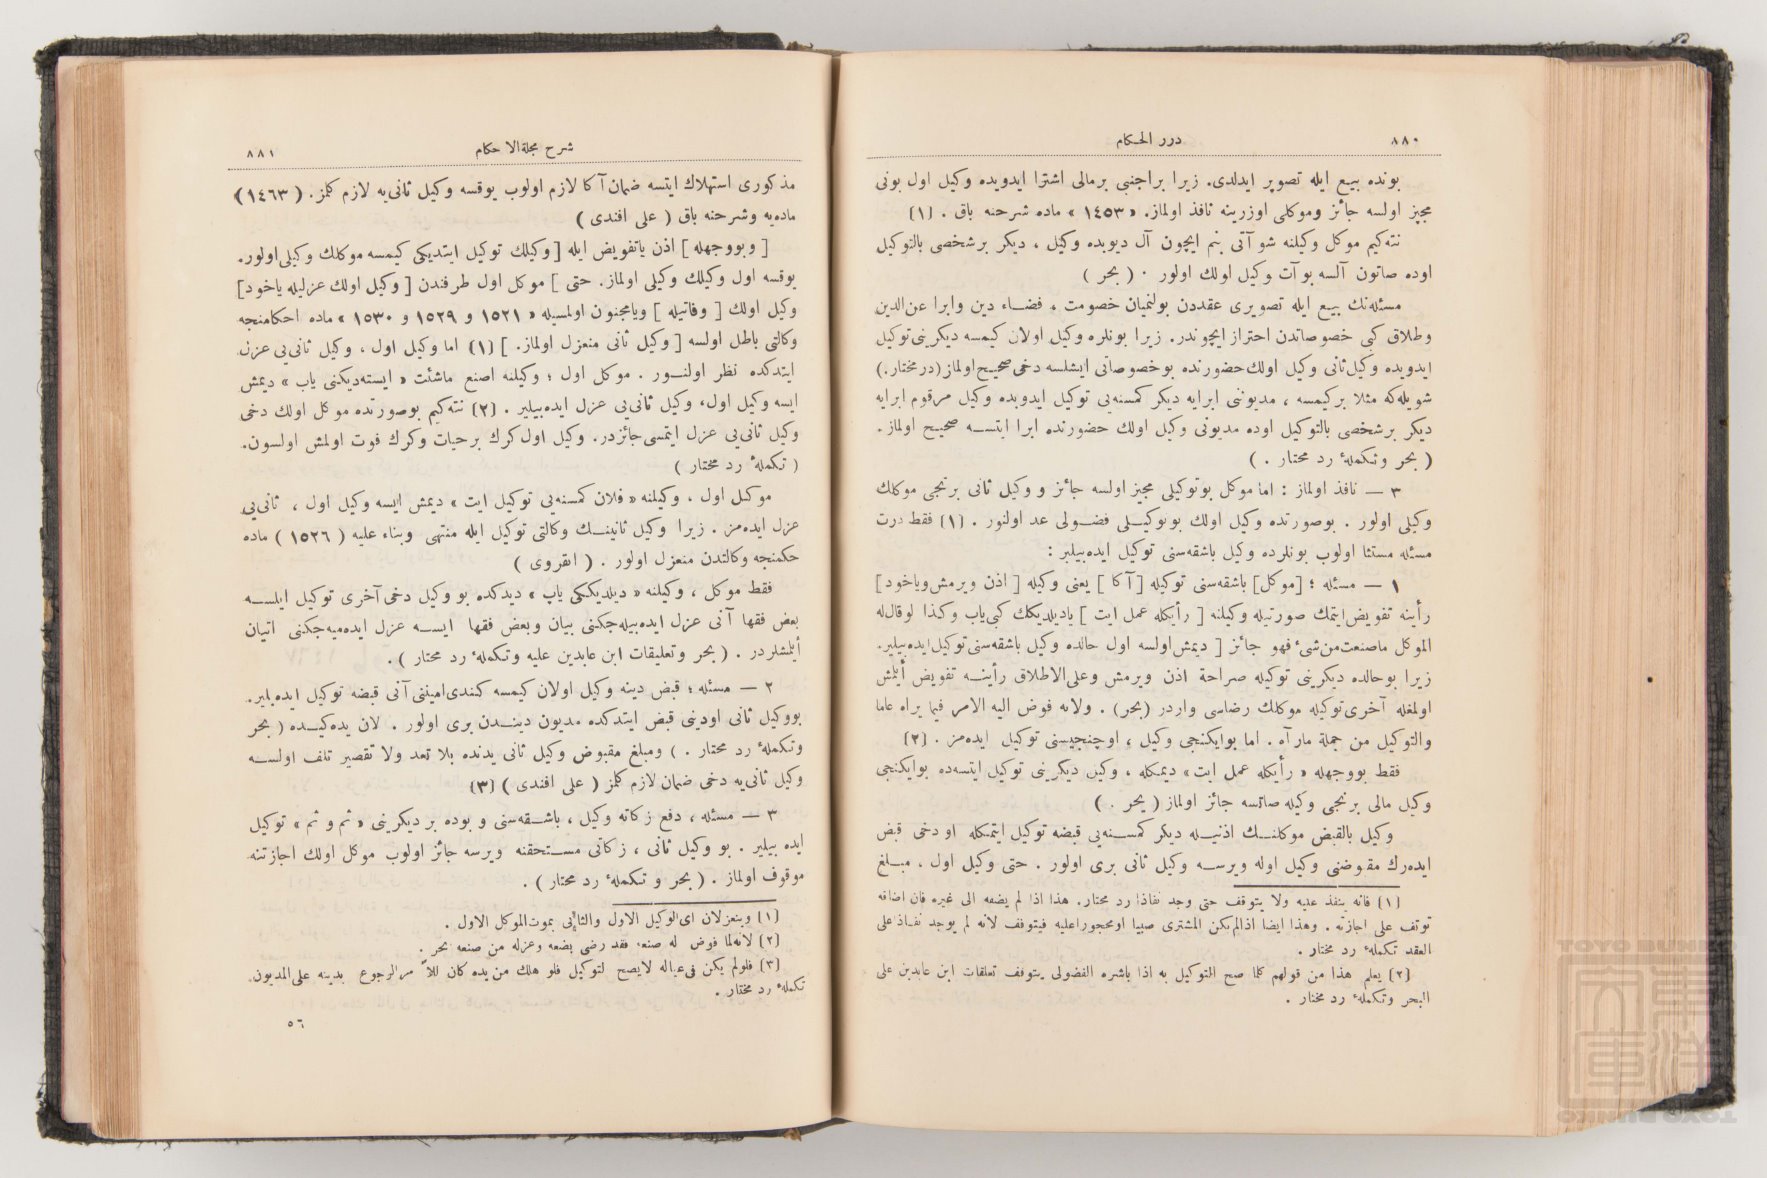 ٨٨٠
درر الحكام
بونده بيع ايله تصوير ايدلدى. زيرا براجنبى برمالى اشترا ايدوبده وكيل اول بونى
مجيز اولسه جائز وموكلى اوزرينه نافذ اولماز. « ١٤٥٣ » ماده شرحنه باق . [١]
نته كيم موكل وكيلنه شو آتى بنم ايچون آل ديوبده وكيل ، ديكر برشخصى بالتوكيل
اوده صاتون آلسه بوآت وكيل اولك اولور . ( بحر )
مسئله نك بيع ايله تصويرى عقددن بولنميان خصومت ، قضـاء دين وابرا عن الدين
وطلاق كبى خصوصاتدن احتراز ايچوندر. زيرا بونلره وكيل اولان كيمسه ديكرينى توكيل
ايدوبده وكيل ثانى وكيل اولك حضورنده بوخصوصاتى ايشلسه دخى صحيح اولماز (درمختار.)
شويله كه مثلا بركيمسه ، مديوننى ابرايه ديكر كمسنه يى توكيل ايدوبده وكيل مرقوم ابرايه
ديكر برشخصى بالتوكيل اوده مديونى وكيل اولك حضورنده ابرا ايتسـه صحيح اولماز .
( بحر وتكملۀ رد محتار . )
٣ — نافذ اولماز : اما موكل بوتوكيلى مجيز اولسه جائز و وكيل ثانى برنجى موكلك
وكيلى اولور . بوصورتده وكيل اولك بوتوكيـلى فضـولى عد اولنور . [١] فقط درت
مسئله مستثنا اولوب بونلرده وكيل باشقه سنى توكيل ايده بيلير :
١ — مسئله ؛ [موكل] باشقه سنى توكيله [ آكا ] يعنى وكيله [ اذن ويرمش وياخود]
رأينه تفويض ايتمك صورتيله وكيلنه [ رأيكله عمل ايت ] ياديلديكك كبى ياب وكذا لوقال له
الموكل ماصنعت من شىء فهو جائز [ ديمش اولسه اول حالده وكيل باشقه سنى توكيل ايده بيلير.
زيرا بوحالده ديكرينى توكيله صراحة اذن ويرمش وعلى الاطلاق رأينـه تفويض ايلمش
اولمغله آخرى توكيله موكلك رضاسى واردر (بحر) . ولانه فوض اليه الامر فيما يراه عاما
والتوكيل من جملة مارآه . اما بوايكنجى وكيل ، اوچنجيسنى توكيل ايده مز . [٢]
فقط بووجهله « رأيكله عمل ايت » ديمكله ، وكيل ديكرينى توكيل ايتسه ده بوايكنجى
وكيل مالى برنجى وكيله صاتسه جائز اولماز ( بحر . )
وكيل بالقبض موكلنـك اذنيـله ديكر كمسـنه يى قبضه توكيل ايتمكله او دخى قبض
ايده رك مقبوضنى وكيل اوله ويرسـه وكيل ثانى برى اولور . حتى وكيل اول ، مبـلغ
[١] فانه ينفذ عليه ولا يتوقف حتى وجد نفاذا رد محتار. هذا اذا لم يضفه الى غيره فان اضافه
توقف على اجازته . وهذا ايضا اذالم يكن المشترى صبيا اومحجورا عليه فيتوقف لانه لم يوجد نفـاذ على
العقد تكملۀ رد محتار .
[٢] يعلم هذا من قولهم كلما صح التوكيل به اذا باشره الفضولى يتوقف تعلقات ابن عابدين على
البحر وتكملۀ رد محتار .
شرح مجلة الاحكام
٨٨١
مذكورى استهلاك ايتسه ضمان آكا لازم اولوب يوقسه وكيل ثانى يه لازم كلمز . ( ١٤٦٣ )
ماده يه وشرحنه باق ( على افندى )
[ وبووجهله ] اذن ياتفويض ايله [ وكيلك توكيل ايتديكى كيمسه موكلك وكيلى اولور.
يوقسه اول وكيلك وكيلى اولماز. حتى ] موكل اول طرفندن [ وكيل اولك عزليله ياخود]
وكيل اولك [ وفاتيله ] ويامجنون اولمسيله « ١٥٢١ و ١٥٢٩ و ١٥٣٠ » ماده احكامنجه
وكالتى باطل اولسه [ وكيل ثانى منعزل اولماز. ] [١] اما وكيل اول ، وكيل ثانى يى عزل
ايتدكده نظر اولنـور . موكل اول ؛ وكيلنه اصنع ماشئت « ايسته ديكنى ياب » ديمش
ايسه وكيل اول، وكيل ثانى يى عزل ايده بيلير . [٢] نته كيم بوصورتده موكل اولك دخى
وكيل ثانى يى عزل ايتمسى جائزدر. وكيل اول كرك برحيات وكرك فوت اولمش اولسون.
( تكملۀ رد محتار )
موكل اول ، وكيلنه « فلان كمسنه يى توكيل ايت » ديمش ايسه وكيل اول ، ثانى يى
عزل ايده مز . زيرا وكيل ثانينـك وكالتى توكيل ايله منتهى وبناء عليه ( ١٥٢٦ ) ماده
حكمنجه وكالتدن منعزل اولور . ( انقروى )
فقط موكل ، وكيلنه « ديلديككى ياپ » ديدكده بو وكيل دخى آخرى توكيل ايلسـه
بعض فقها آنى عزل ايده بيله جكنى بيان وبعض فقها ايسـه عزل ايده ميه جكنى اتيان
ايلمشلردر . ( بحر وتعليقات ابن عابدين عليه وتكملۀ رد محتار ) .
٢ — مسئله ؛ قبض دينه وكيل اولان كيمسه كندى امينى آنى قبضه توكيل ايده بلير.
بووكيل ثانى اودينى قبض ايتدكده مديون دينـدن برى اولور . لان يده كيـده ( بحر
وتكملۀ رد محتار . ) ومبلغ مقبوض وكيل ثانى يدنده بلا تعد ولا تقصير تلف اولسـه
وكيل ثانى يه دخى ضمان لازم كلمز ( على افندى ) [٣]
٣ — مسئله ، دفع زكاته وكيل ، باشـقه سنى و بوده بر ديكرينى « ثم و ثم » توكيل
ايده بيلير . بو وكيل ثانى ، زكاتى مسـتحقنه ويرسه جائز اولوب موكل اولك اجازتنه
موقوف اولماز . ( بحر و تكملۀ رد محتار ) .
[١] وينعزلان اى الوكيل الاول والثانى بموت الموكل الاول .
[٢] لانه لما فوض له صنعه فقد رضى بضعه وعزله من صنعه بحر .
[٣] فلو لم يكن فى عياله لايصح التوكيل فلو هلك من يده كان للآمر الرجوع بدينه على المديون.
تكملۀ رد محتار .
٥٦
TOYO BUNKO
TOYO BUNKO